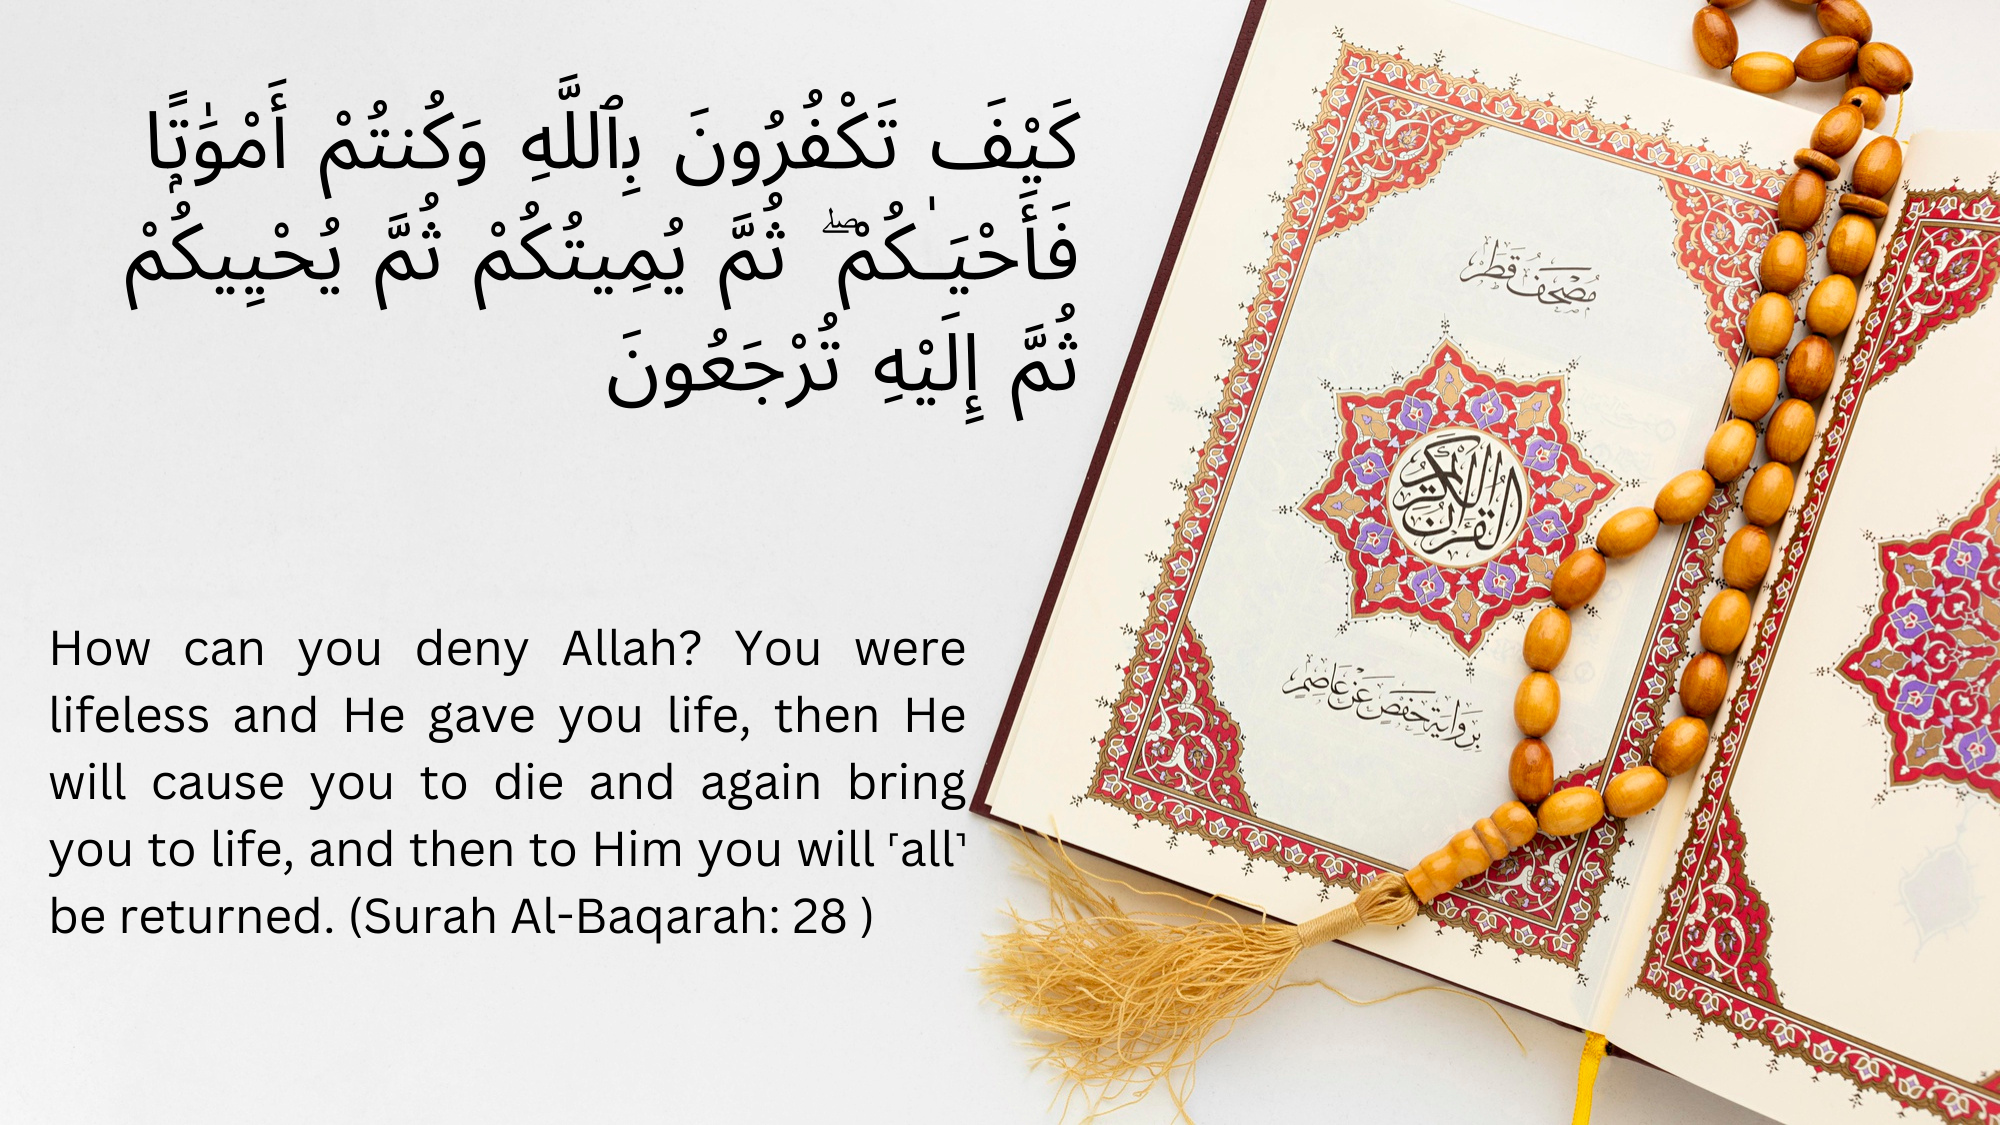 كَيْفَ تَكْفُرُونَ بِٱللَّهِ وَكُنتُمْ أَمْوَٰتًۭا
فَأَحْيَـٰكُمْ ۖ ثُمَّ يُمِيتُكُمْ ثُمَّ يُحْيِيكُمْ
ثُمَّ إِلَيْهِ تُرْجَعُونَ
How can you deny Allah? You were
lifeless and He gave you life, then He
will cause you to die and again bring
you to life, and then to Him you will ˹all˺
be returned. (Surah Al-Baqarah: 28 )
مصحف قطر
القرآن الكريم
برواية حفص عن عاصم